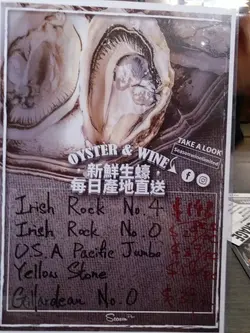 OYSTER & WINE
TAKE A LOOK!
新鮮生蠔
每日產地直送
Irish Rock No.4
Irish Rock No.0
U.S.A Pacific Jumbo
Yellow Stone
Gillardeau No.0
Season